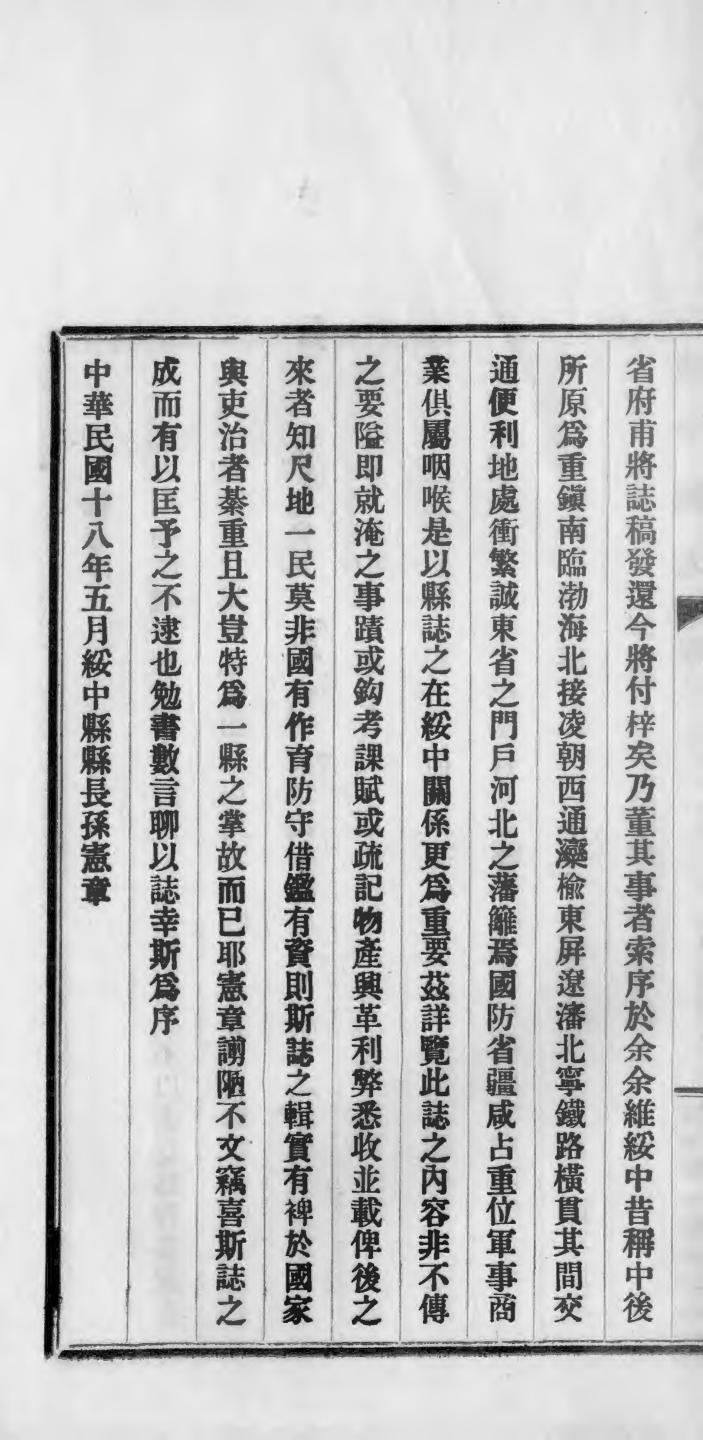 省府甫將誌稿發還今將付梓矣乃董其事者索序於余余維綏中昔稱中後
所原爲重鎭南臨渤海北接凌朝西通灤楡東屛遼瀋北寧鐵路橫貫其間交
通便利地處衝繁誠東省之門戶河北之藩籬焉國防省疆咸占重位軍事商
業俱屬咽喉是以縣誌之在綏中關係更爲重要茲詳覽此誌之內容非不傳
之要隘即就淹之事蹟或鈎考課賦或疏記物產興革利弊悉收並載俾後之
來者知尺地一民莫非國有作育防守借鑑有資則斯誌之輯實有裨於國家
與吏治者綦重且大豈特爲一縣之掌故而已耶憲章謭陋不文竊喜斯誌之
成而有以匡予之不逮也勉書數言聊以誌幸斯爲序
中華民國十八年五月綏中縣縣長孫憲章